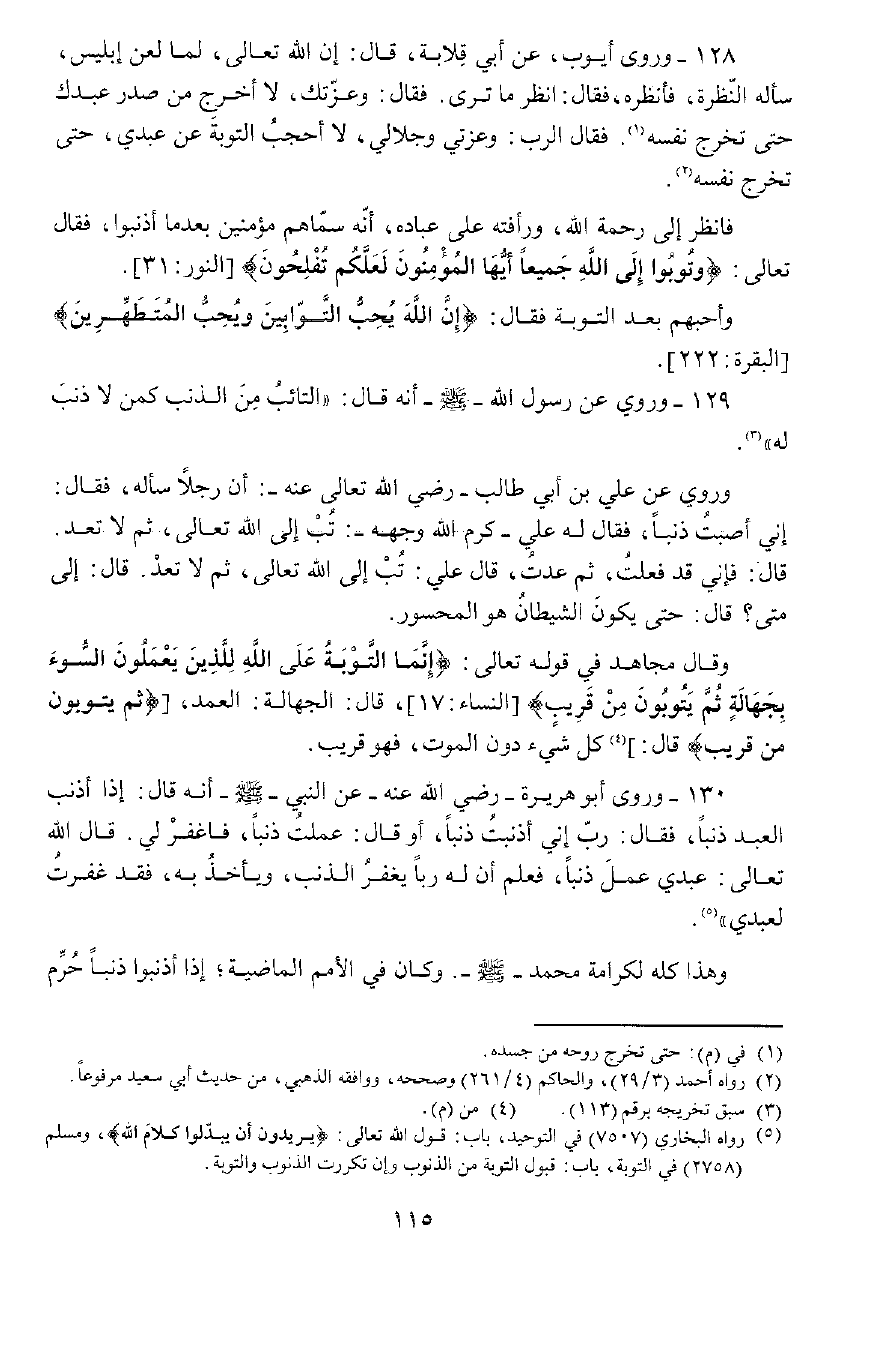 ١٢٨ ـ وروى أيوب، عن أبي قِلابة، قال: إن الله تعالى، لما لعن إبليس،
سأله النّظرة، فأنظره، فقال: انظر ما ترى. فقال: وعزّتك، لا أخرج من صدر عبدك
حتى تخرج نفسه(١). فقال الرب: وعزتي وجلالي، لا أحجبُ التوبةَ عن عبدي، حتى
تخرج نفسه(٢).
فانظر إلى رحمة الله، ورأفته على عباده، أنّه سمّاهم مؤمنين بعدما أذنبوا، فقال
تعالى: ﴿وتُوبُوا إِلَى اللَّهِ جَميعاً أيُّهَا المُؤْمِنُونَ لَعَلَّكُم تُفْلِحُونَ﴾ [النور: ٣١].
وأحبهم بعد التوبة فقال: ﴿إنَّ اللَّهَ يُحِبُّ التَّوّابِينَ ويُحِبُّ المُتَطَهِّرِينَ﴾
[البقرة: ٢٢٢].
١٢٩ ـ وروي عن رسول الله ـ ﷺ ـ أنه قال: «التائبُ مِنَ الذنب كمن لا ذنبَ
له»(٣).
وروي عن علي بن أبي طالب ـ رضي الله تعالى عنه ـ: أن رجلاً سأله، فقال:
إني أصبتُ ذنباً، فقال له علي ـ كرم الله وجهه ـ: تُبْ إلى الله تعالى، ثم لا تعد.
قال: فإني قد فعلتُ، ثم عدتُ، قال علي: تُبْ إلى الله تعالى، ثم لا تعدْ. قال: إلى
متى؟ قال: حتى يكونَ الشيطانُ هو المحسور.
وقال مجاهد في قوله تعالى: ﴿إنَّمَا التَّوْبَةُ عَلَى اللَّهِ لِلَّذِينَ يَعْمَلُونَ السُّوءَ
بِجَهَالَةٍ ثُمَّ يَتُوبُونَ مِنْ قَرِيبٍ﴾ [النساء: ١٧]، قال: الجهالة: العمد، [﴿ثم يتوبون
من قريب﴾ قال: ](٤) كل شيء دون الموت، فهو قريب.
١٣٠ ـ وروى أبو هريرة ـ رضي الله عنه ـ عن النبي ـ ﷺ ـ أنه قال: إذا أذنب
العبد ذنباً، فقال: ربّ إني أذنبتُ ذنباً، أو قال: عملتُ ذنباً، فاغفرْ لي. قال الله
تعالى: عبدي عملَ ذنباً، فعلم أن له رباً يغفرُ الذنب، ويأخذُ به، فقد غفرتُ
لعبدي»(٥).
وهذا كله لكرامة محمد ـ ﷺ ـ. وكان في الأمم الماضية؛ إذا أذنبوا ذنباً حُرِّم
(١) في (م): حتى تخرج روحه من جسده.
(٢) رواه أحمد (٢٩/٣)، والحاكم (٢٦١/٤) وصححه، ووافقه الذهبي، من حديث أبي سعيد مرفوعاً.
(٣) سبق تخريجه برقم (١١٣). (٤) من (م).
(٥) رواه البخاري (٧٥٠٧) في التوحيد، باب: قول الله تعالى: ﴿يريدون أن يبدّلوا كلامَ الله﴾، ومسلم
(٢٧٥٨) في التوبة، باب: قبول التوبة من الذنوب وإن تكررت الذنوب والتوبة.
١١٥